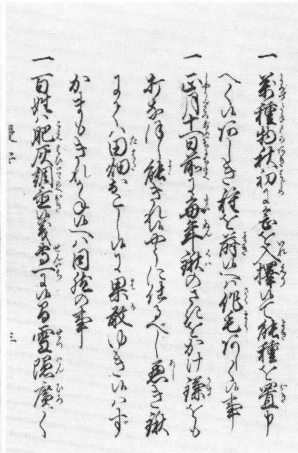 一 萬種物秋初に念を入擇ひて能種を置申
へく候あしき種を蒔候へハ作毛あしく候事
一 正月十一日前に毎年鍬のさきをかけ鎌をも
打なほし能きれ候やうに仕るべし悪き鍬
にてハ田畑おこし候に果敢ゆき候ハず
かまもきれかね候へハ同然の事
一 百姓ハ肥灰調置候義専一に候間雪隠廣く
三